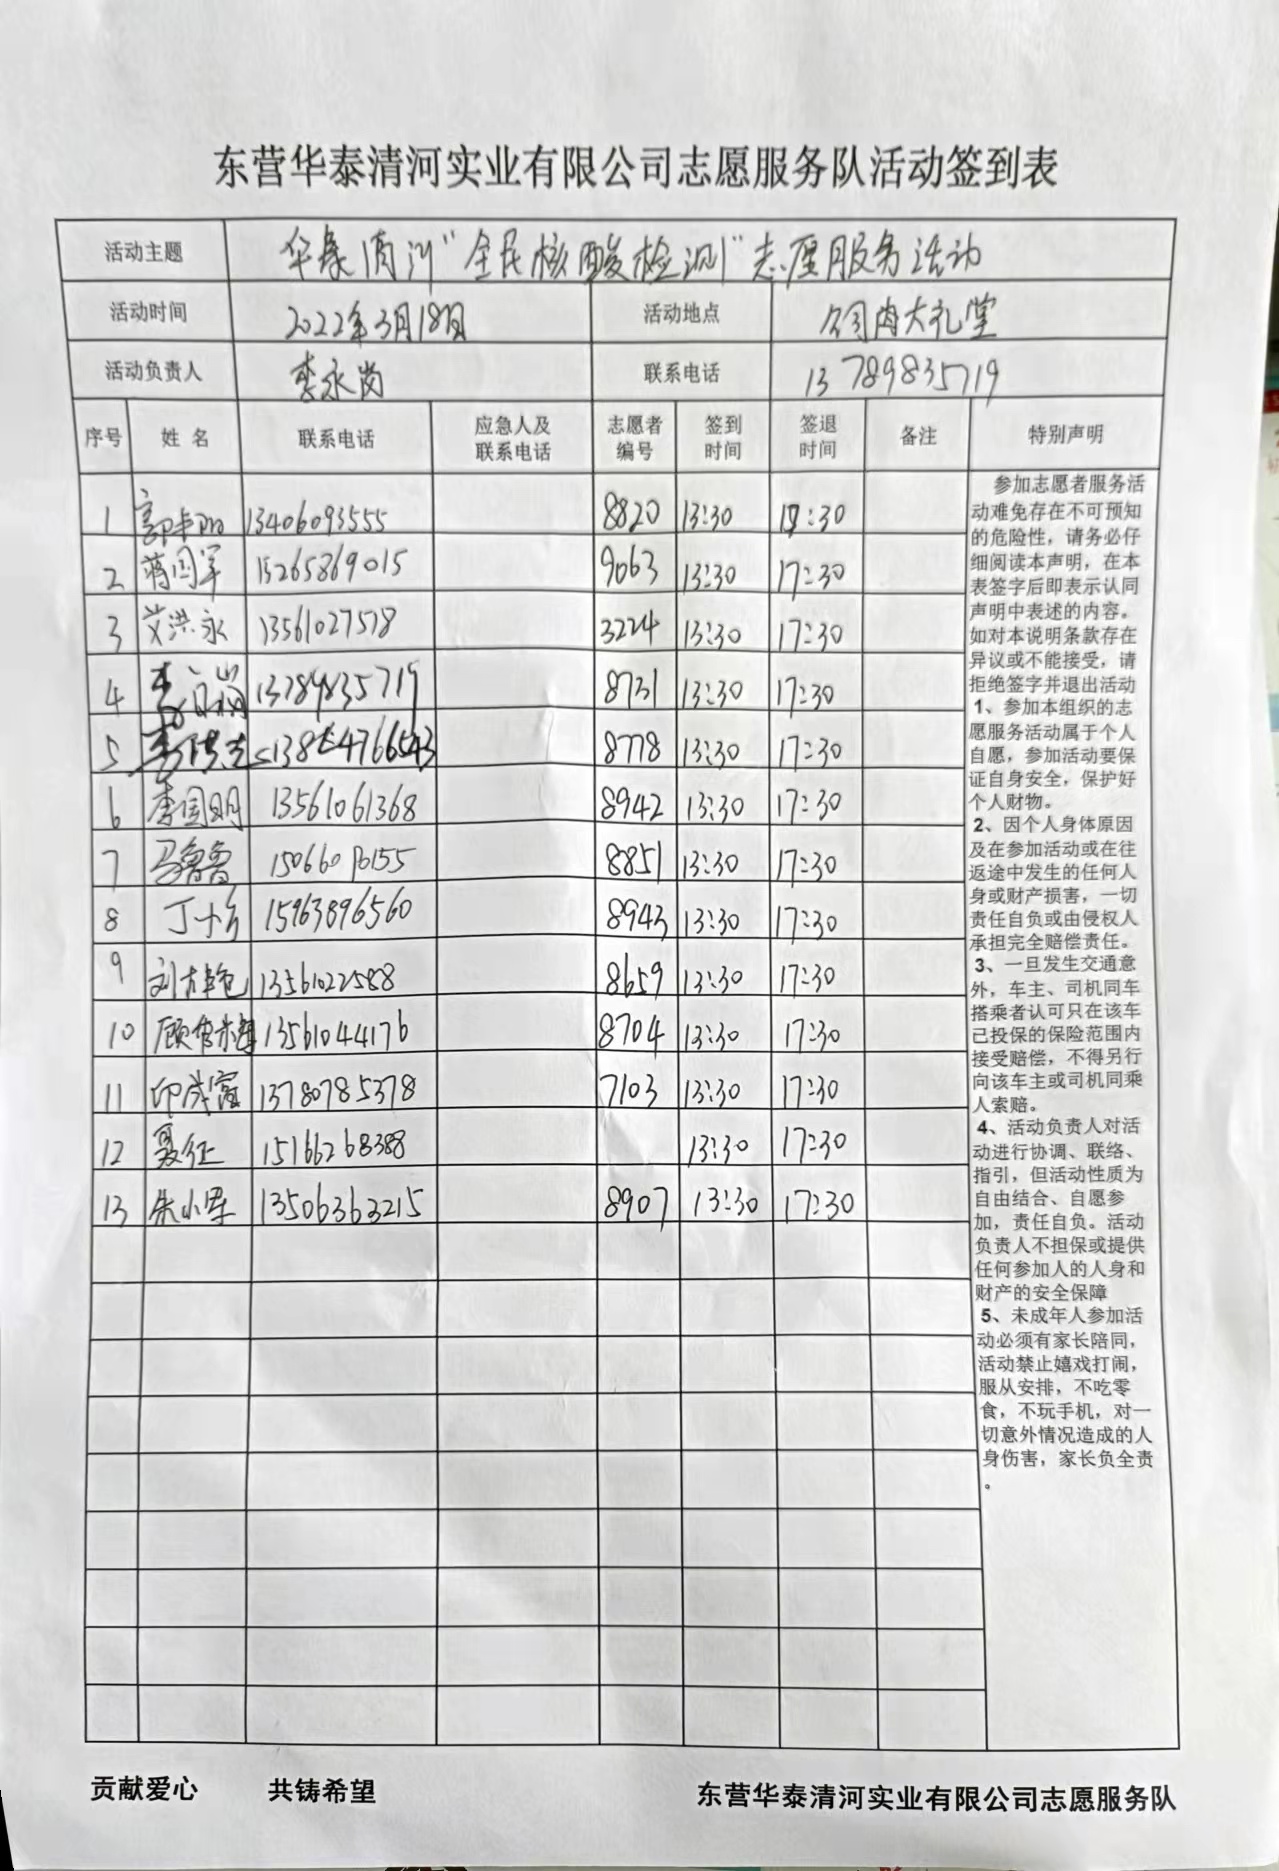 东营华泰清河实业有限公司志愿服务队活动签到表
活动主题 华泰清河"全民核酸检测"志愿服务活动
活动时间 2022年3月18日 活动地点 公司内大礼堂
活动负责人 李永岗 联系电话 13789835719
序号 姓名 联系电话 应急人及联系电话 志愿者编号 签到时间 签退时间 备注 特别声明
1 13406093555 8820 13:30 17:30
2 蒋国军 15265869015 9063 13:30 17:30
3 艾洪永 13561027578 3224 13:30 17:30
4 13789835719 8731 13:30 17:30
5 8778 13:30 17:30
6 李国明 13561061368 8942 13:30 17:30
7 马鲁鲁 8851 13:30 17:30
8 15963896560 8943 13:30 17:30
9 13561022588 8659 13:30 17:30
10 13561044176 8704 13:30 17:30
11 印成富 13780785378 7103 13:30 17:30
12 聂征 15166268388 13:30 17:30
13 朱小军 13506363215 8907 13:30 17:30
参加志愿者服务活
动难免存在不可预知
的危险性，请务必仔
细阅读本声明，在本
表签字后即表示认同
声明中表述的内容。
如对本说明条款存在
异议或不能接受，请
拒绝签字并退出活动
1、参加本组织的志
愿服务活动属于个人
自愿，参加活动要保
证自身安全，保护好
个人财物。
2、因个人身体原因
及在参加活动或在往
返途中发生的任何人
身或财产损害，一切
责任自负或由侵权人
承担完全赔偿责任。
3、一旦发生交通意
外，车主、司机同车
搭乘者认可只在该车
已投保的保险范围内
接受赔偿，不得另行
向该车主或司机同乘
人索赔。
4、活动负责人对活
动进行协调、联络、
指引，但活动性质为
自由结合、自愿参
加，责任自负。活动
负责人不担保或提供
任何参加人的人身和
财产的安全保障
5、未成年人参加活
动必须有家长陪同，
活动禁止嬉戏打闹，
服从安排，不吃零
食，不玩手机，对一
切意外情况造成的人
身伤害，家长负全责
。
贡献爱心 共铸希望 东营华泰清河实业有限公司志愿服务队